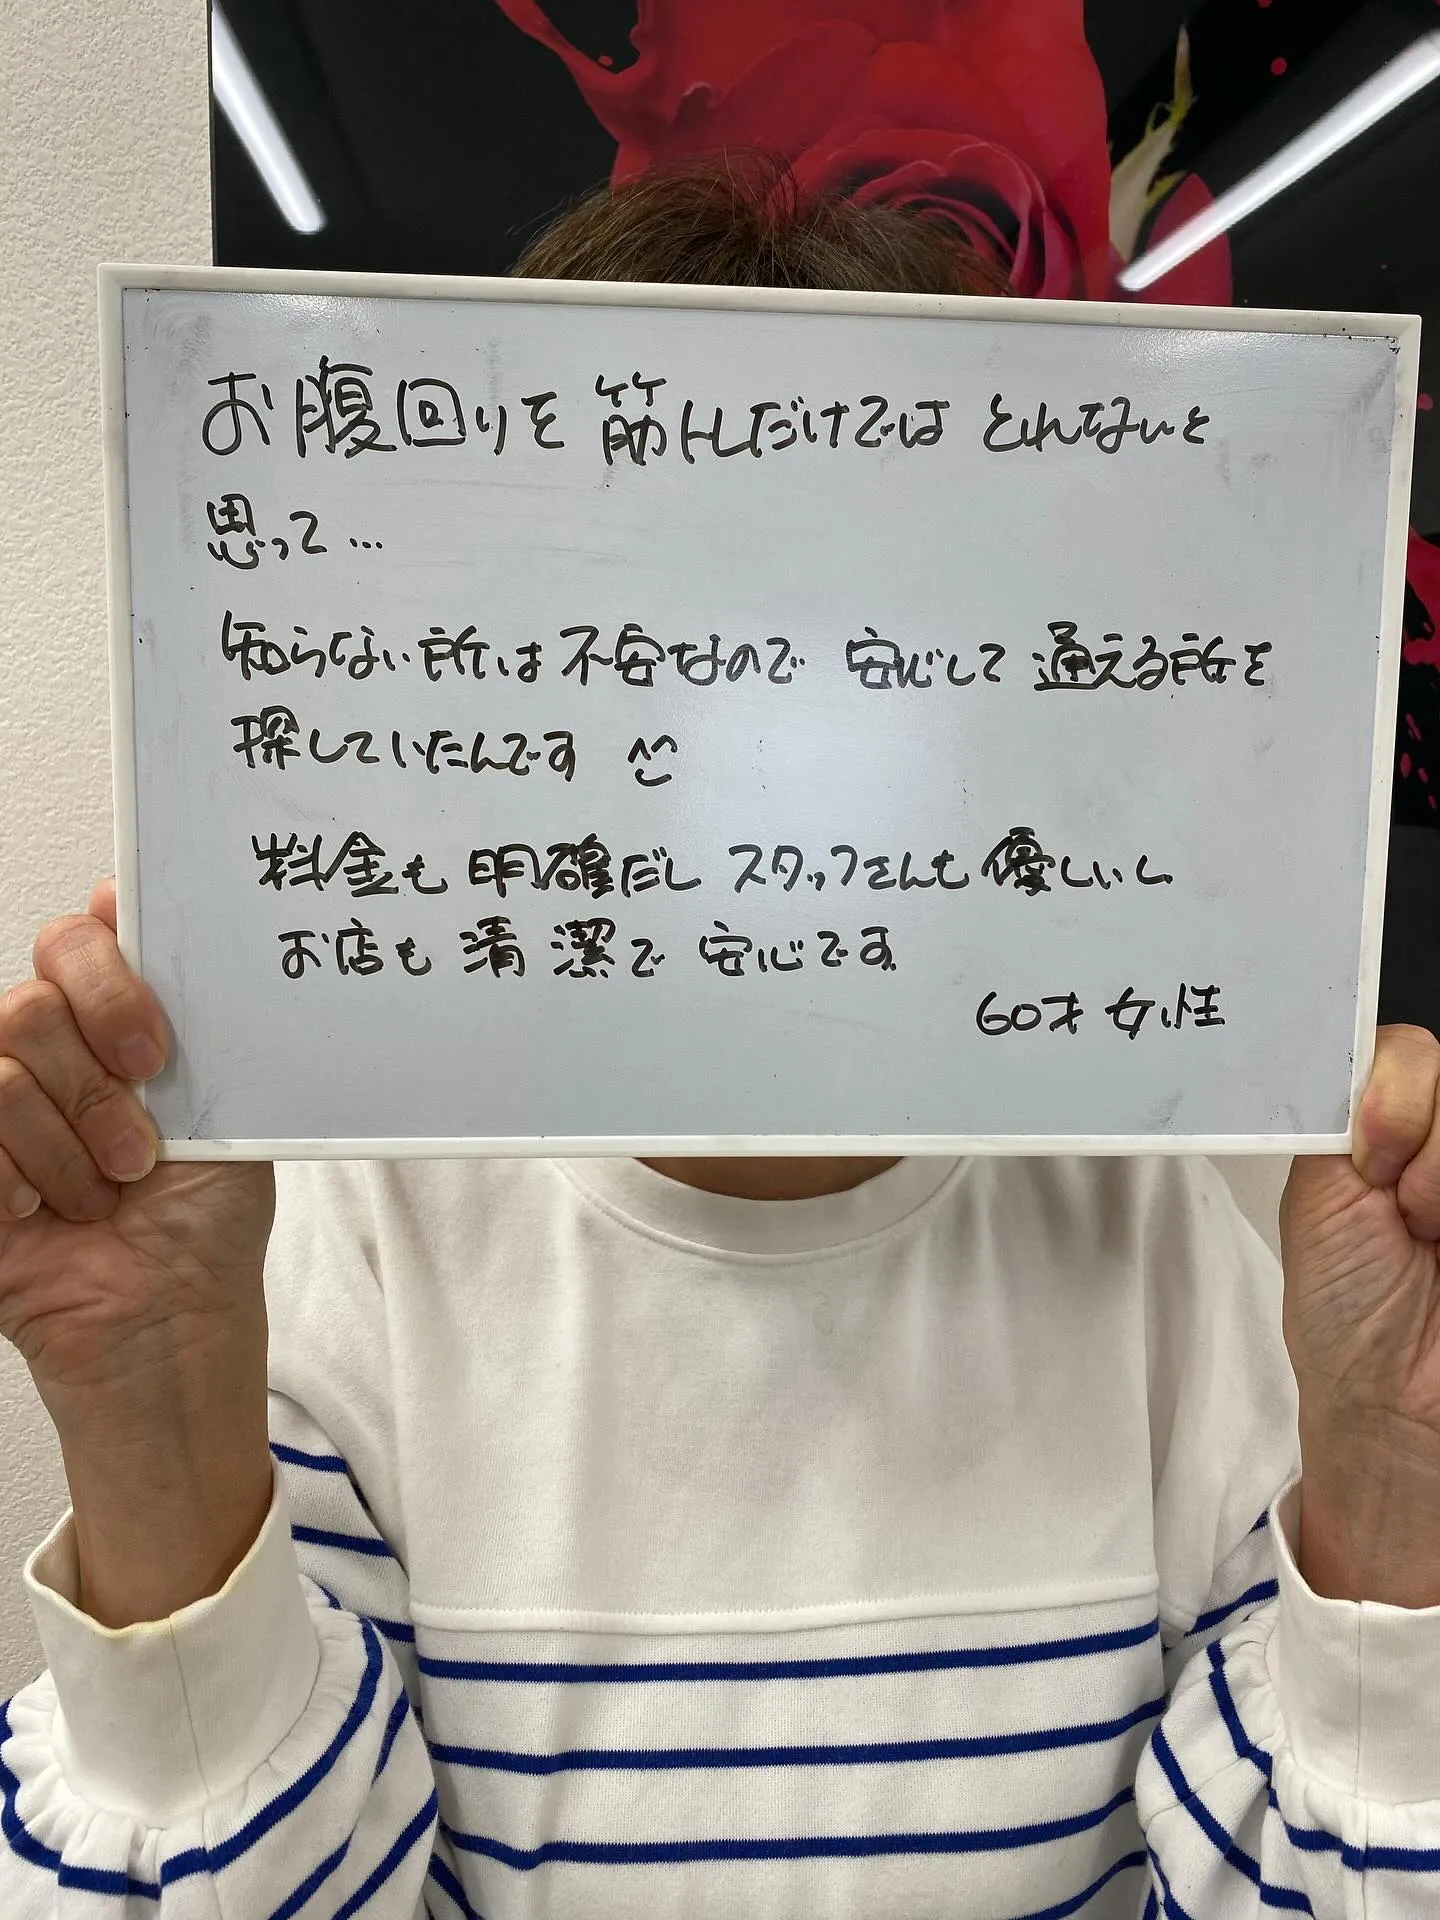 お腹回りを筋トレだけではとれないと
思って…
知らない所は不安なので 安心して通える所を
探していたんです ^^
料金も明確だし スタッフさんも優しいし
お店も清潔で 安心です
60才 女性